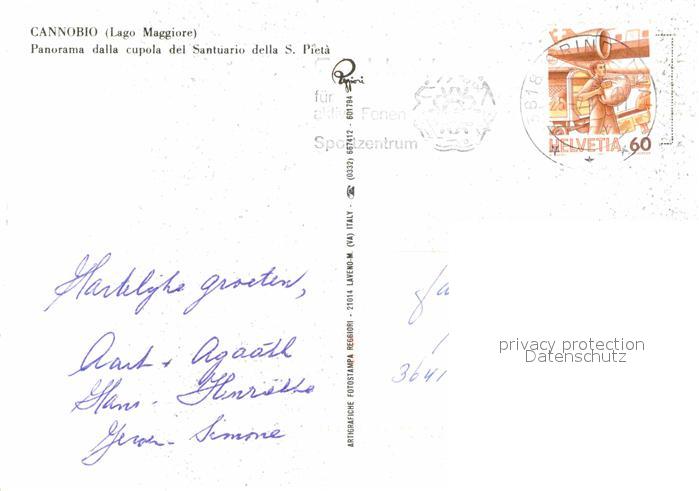 CANNOBIO (Lago Maggiore)
Panorama dalla cupola del Santuario della S. Pietà
Reggiori
für
aktive Ferien
Sportzentrum
HELVETIA 60
ARTIGRAFICHE FOTOSTAMPA REGGIORI - 21014 LAVENO-M. (VA) ITALY - ☎ (0332) 667412 - 601794
Hartelijke groeten,
Aart + Agaath
Hans - Henriëtte
Jeroen - Simone
Fa
3641
privacy protection
Datenschutz